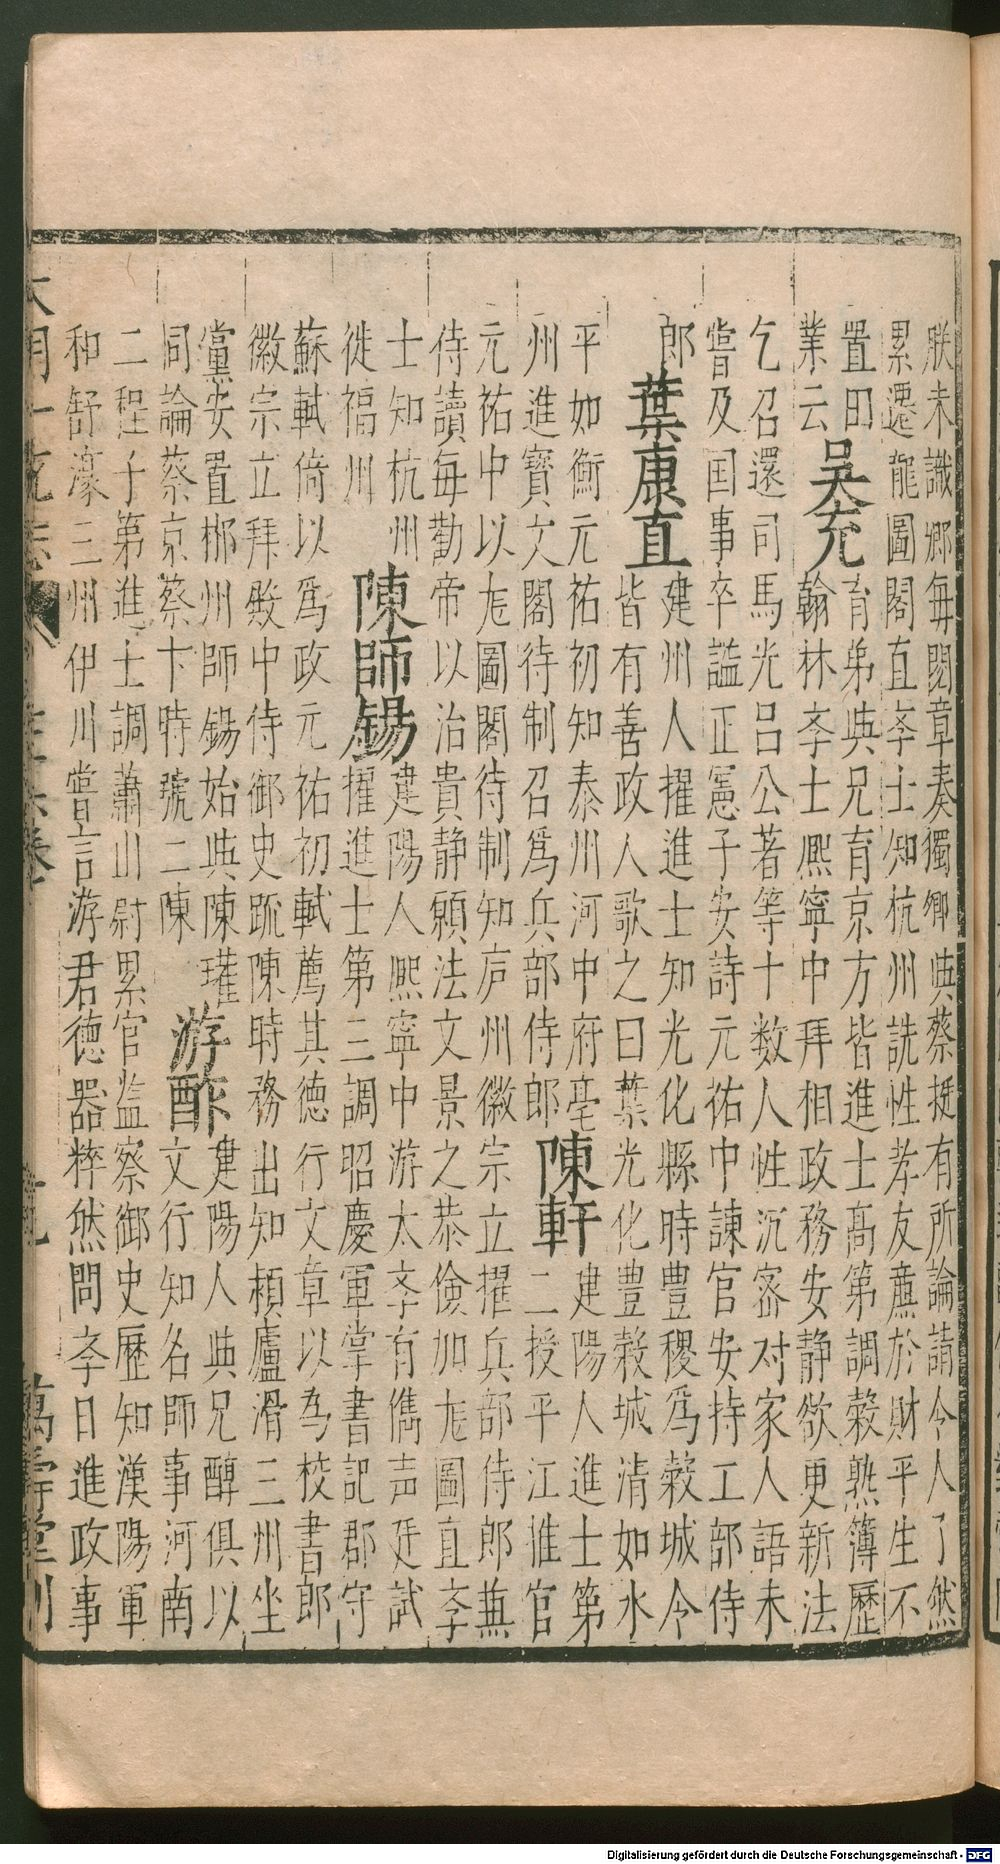 朕未識卿每閱章奏獨卿與蔡挺有所論請令人了然
累遷龍圖閣直孝士知杭州詵性孝友廉於財平生不
置田
吳充
育弟與兄育京方皆進士高第調穀熟簿歷
業云
翰林孝士熈寧中拜相政務安静欲更新法
乞召還司馬光吕公著等十数人性沉宻对家人語未
嘗及囯事卒謚正憲子安詩元祐中諫官安持工部侍
郎
葉康直
建州人擢進士知光化縣時豊稷爲榖城令
皆有善政人歌之曰葉光化豊榖城清如水
平如衡元祐初知泰州河中府亳
陳軒
建陽人進士第
二授平江推官
州進寶文閣待制召爲兵部侍郎
元祐中以尨圖閣待制知庐州徽宗立擢兵部侍郎蒹
侍讀每勸帝以治貴静願法文景之恭儉加尨圖直孝
士知杭州
徙福州
陳師錫
建陽人熈寧中游太孝有儁声廷試
擢進士第三調昭慶軍掌書記郡守
蘇軾倚以爲政元祐初軾薦其徳行文章以为校書郎
徽宗立拜殿中侍御史䟽陳時務出知頴廬滑三州坐
黨安置郴州師錫始與陳瓘
同論蔡京蔡卞時號二陳
游酢
建陽人與兄醇俱以
文行知名師事河南
二程子第進士調蕭山尉累官监察御史歷知漢陽軍
和舒濠三州伊川嘗言游君徳器粹然問孝日進政事
大明一統志
十九
萬壽堂刊
Digitalisierung gefördert durch die Deutsche Forschungsgemeinschaft - DFG